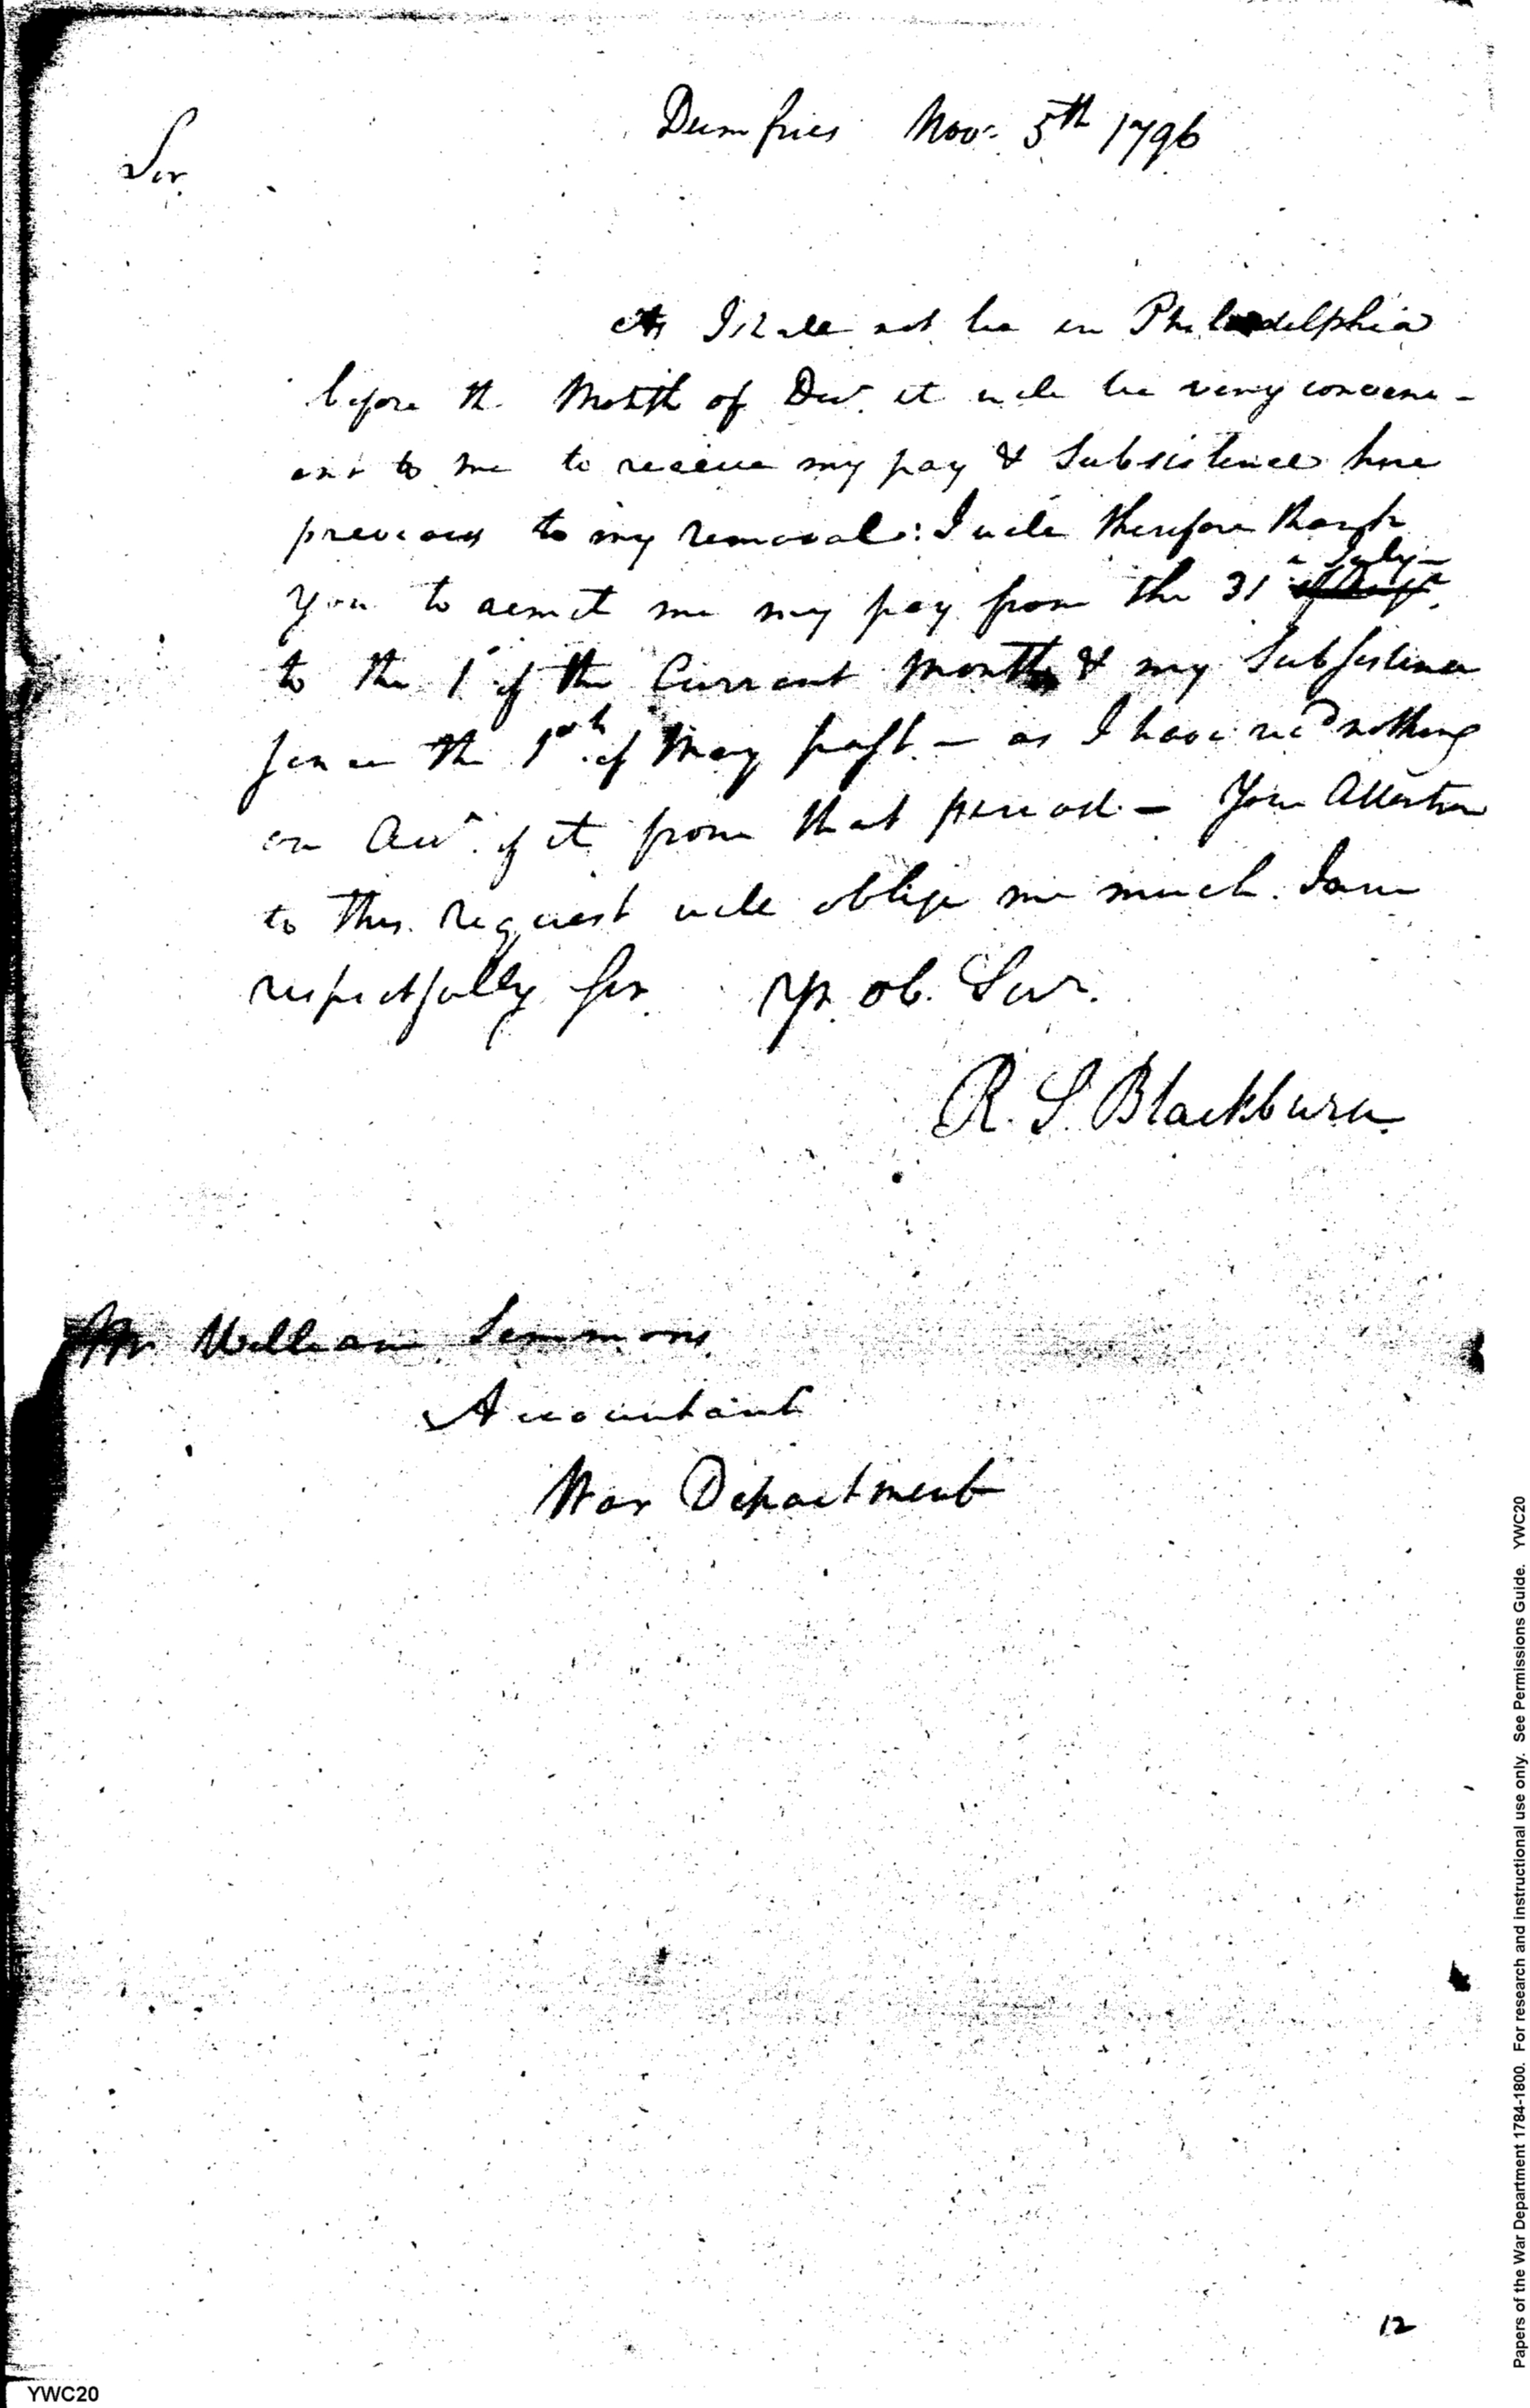 Dumfries Nov.r 5th 1796
Sir
As I shall not be in Philadelphia
before the Month of Decr. it will be very conveni-
ent to me to receive my pay & Subsistence here
previous to my removal: I will therefore thank
July
You to remit me my pay from the 31
to the 1 of the Current Month & my Subsistence
since the 1st of May past — as I have recd nothing
on Acct. of it from that period — Your Attention
to this request will oblige me much. I am
respectfully Sir Yr. ob. Servt.
R. S. Blackburn
Mr William Simmons
Accountant
War Department
12
YWC20
Papers of the War Department 1784-1800. For research and instructional use only. See Permissions Guide. YWC20